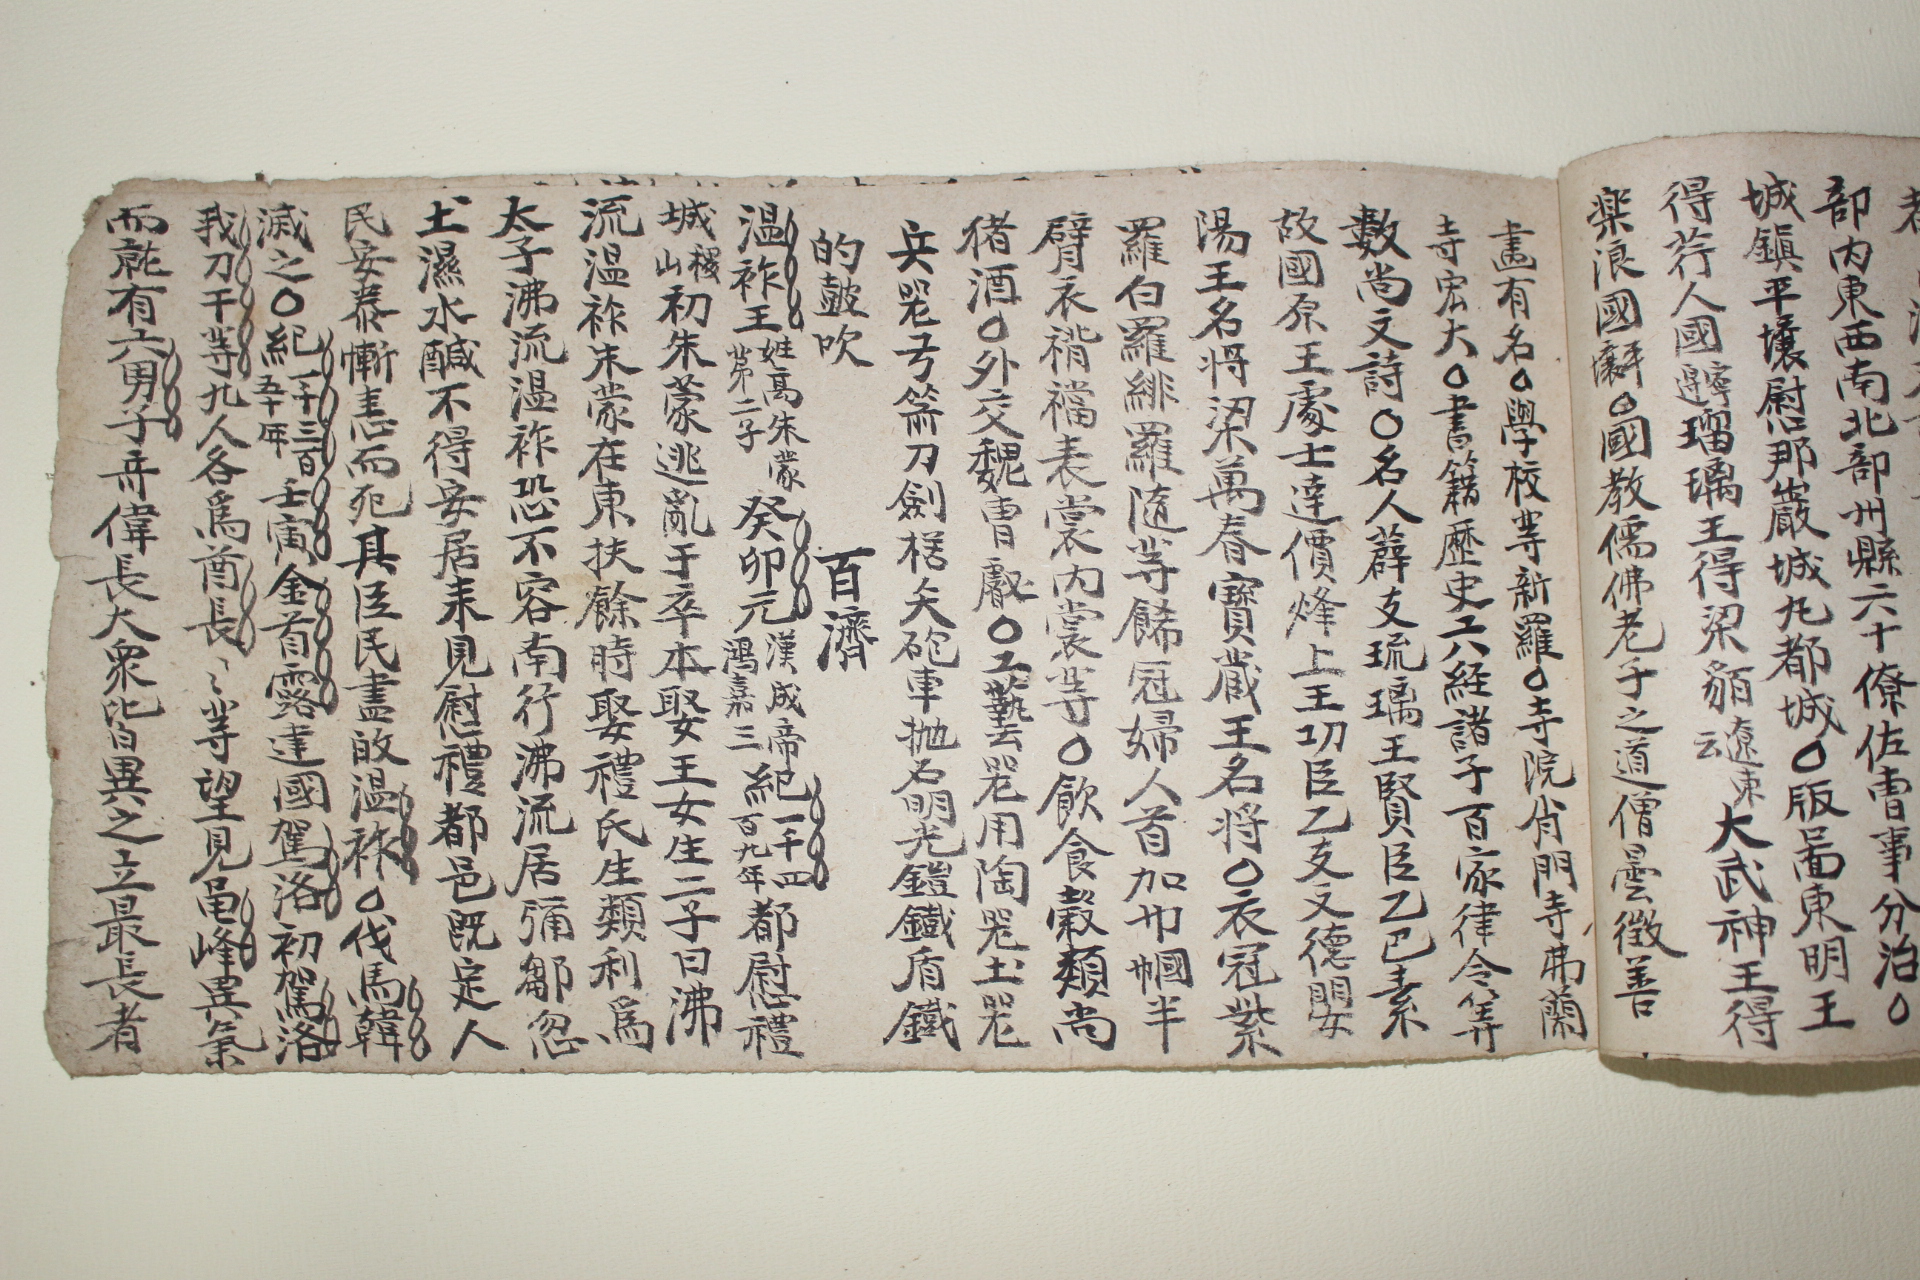 部內東西南北部州縣六十僚佐曹事分治○
城鎮平壤慰那巖城九都城○版圖東明王
得荇人國瑠璃王得梁貊遼東云大武神王得
樂浪國○國教儒佛老子之道僧曇徵善
畫有名○學校等新羅○寺院肖門寺弗蘭
寺宏大○書籍歷史六經諸子百家律令等
數尚文詩○名人薛支琉璃王賢臣乙巴素
故國原王處士達價烽上王功臣乙支文德嬰
陽王名將梁萬春寶藏王名將○衣冠紫
羅白羅緋羅隨等餙冠婦人首加巾幗半
臂衣褙襠表裳內裳等○飲食穀類尚
猪酒○外交魏曹獻○工藝器用陶器土器
兵器弓箭刀劍楛矢砲車抛石明光鎧鐵盾鐵
的鼓吹
百濟
溫祚王姓高朱蒙第二子癸卯元漢成帝鴻嘉三紀一千四百九年都慰禮
城稷山初朱蒙逃亂于卒本娶王女生二子曰沸
流溫祚朱蒙在東扶餘時娶禮氏生類利爲
太子沸流溫祚恐不容南行沸流居彌鄒忽
土濕水鹹不得安居來見慰禮都邑旣定人
民安泰慚恚而死其臣民盡故溫祚○伐馬韓
滅之○紀一千三百五十年壬寅金首露建國駕洛初駕洛
我刀干等九人各爲酋長〻等望見龜峰異氣
而就有六男子奇偉長大衆皆異之立最長者